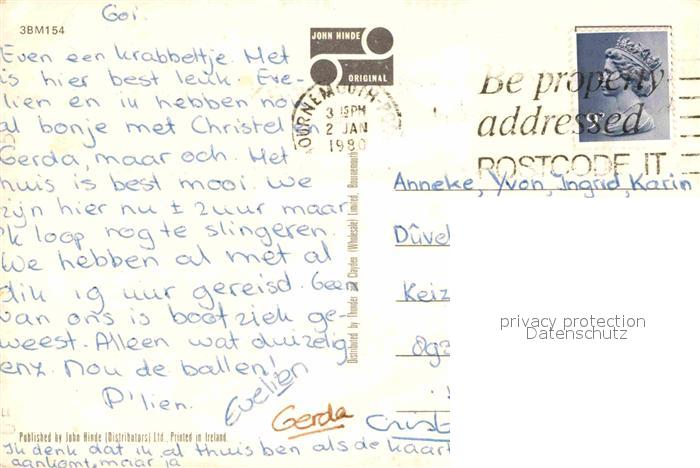 Goi.
3BM154
Even een krabbeltje. Met
is hier best leuk. Eve-
lien en ik hebben nou
al bonje met Christel en
Gerda, maar och. Het
huis is best mooi. We
zijn hier nu ± 2 uur maar
ik loop nog te slingeren.
We hebben al met al
dik 19 uur gereisd. Geen
van ons is bootziek ge-
weest. Alleen wat duizelig
enz. Nou de ballen!
P'lien.
Evelien
Gerda
Published by John Hinde (Distributors) Ltd., Printed in Ireland.
Ik denk dat ik al thuis ben als de kaart
aankomt, maar ja
JOHN HINDE
ORIGINAL
Distributed by Thunder and Clayden (Wholesale) Limited. Bournemouth
BOURNEMOUTH-
3 15PM
2 JAN
1980
Be properly
addressed
POSTCODE IT
Anneke, Yvon, Ingrid, Karin
Dûvel
Keiz
privacy protection
Datenschutz